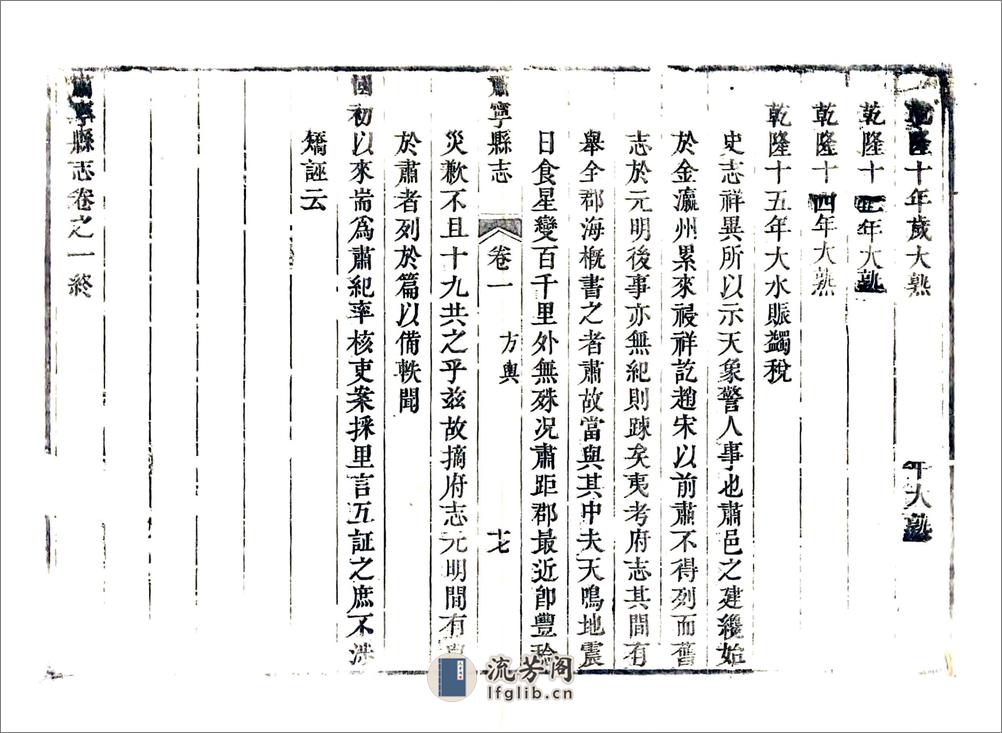 乾隆十年歲大熟
年大熟
乾隆十三年大熟
乾隆十四年大熟
乾隆十五年大水賑蠲稅
史志祥異所以示天象警人事也肅邑之建纔始
於金瀛州累來祲祥訖趙宋以前肅不得列而舊
志於元明後事亦無紀則踈矣夷考府志其間有
舉全郡海概書之者肅故當與其中夫天鳴地震
日食星變百千里外無殊况肅距郡最近卽豐
肅寧縣志
卷一
方輿
十七
災歉不且十九共之乎兹故摘府志元明間有
於肅者列於篇以備軼聞
國初以來耑爲肅紀率核吏案採里言互証之庶不涉
矯誣云
肅寧縣志卷之一終
流芳阁
lfglib.cn